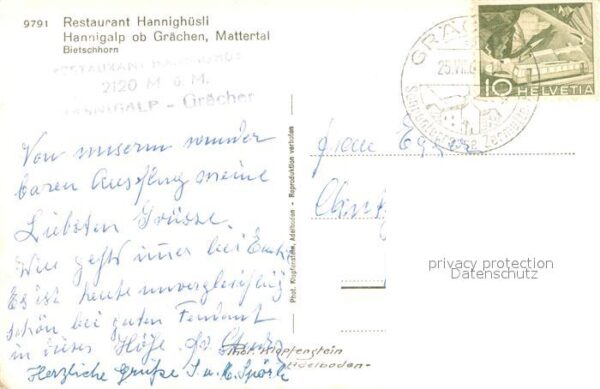 9791 Restaurant Hannighüsli
Hannigalp ob Grächen, Mattertal
Bietschhorn
RESTAURANT
2120 M. ü. M.
HANNIGALP - Grächen
GRÄCHEN
25.VII.
10 HELVETIA
Von unserm wunder
baren Ausflug meine
Liebsten Grüsse.
Wie gehts immer bei Euch
Es ist heute unvergleichlich
schön bei gutem Fendant
in dieser Höhe.
Herzliche Grüsse J. u. K. Spörli
Phot. Klopfenstein, Adelboden - Reproduktion verboten
Frau
privacy protection
Datenschutz
Phot. Klopfenstein
Adelboden